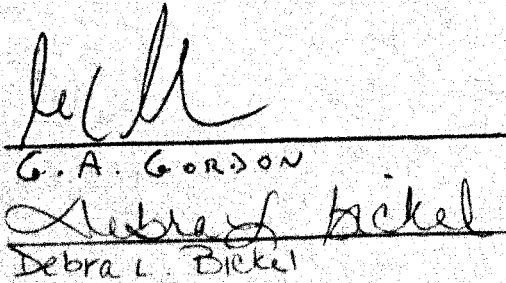 G. A. GORDON
Debra L Bickel
Debra L. Bickel